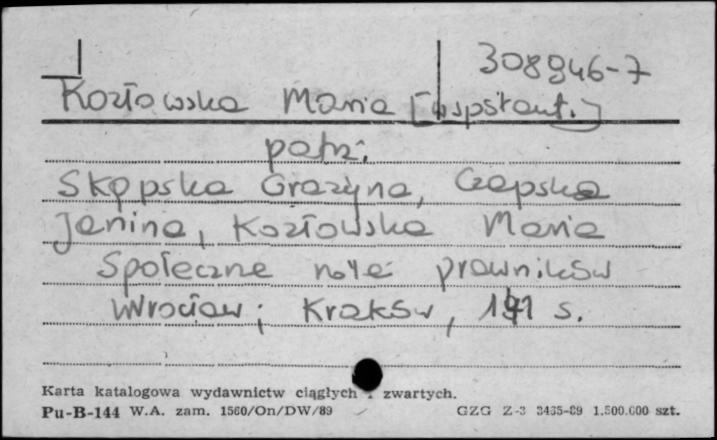 308946-7
Kozłowska Maria [współaut.]
patrz:
Skąpska Grażyna, Czapska
Janina, Kozłowska Maria
Społeczne role prawników
Wrocław; Kraków, 191 s.
Karta katalogowa wydawnictw ciągłych i zwartych.
Pu-B-144 W.A. zam. 1560/On/DW/89 GZG Z-3 3435-89 1.500.000 szt.